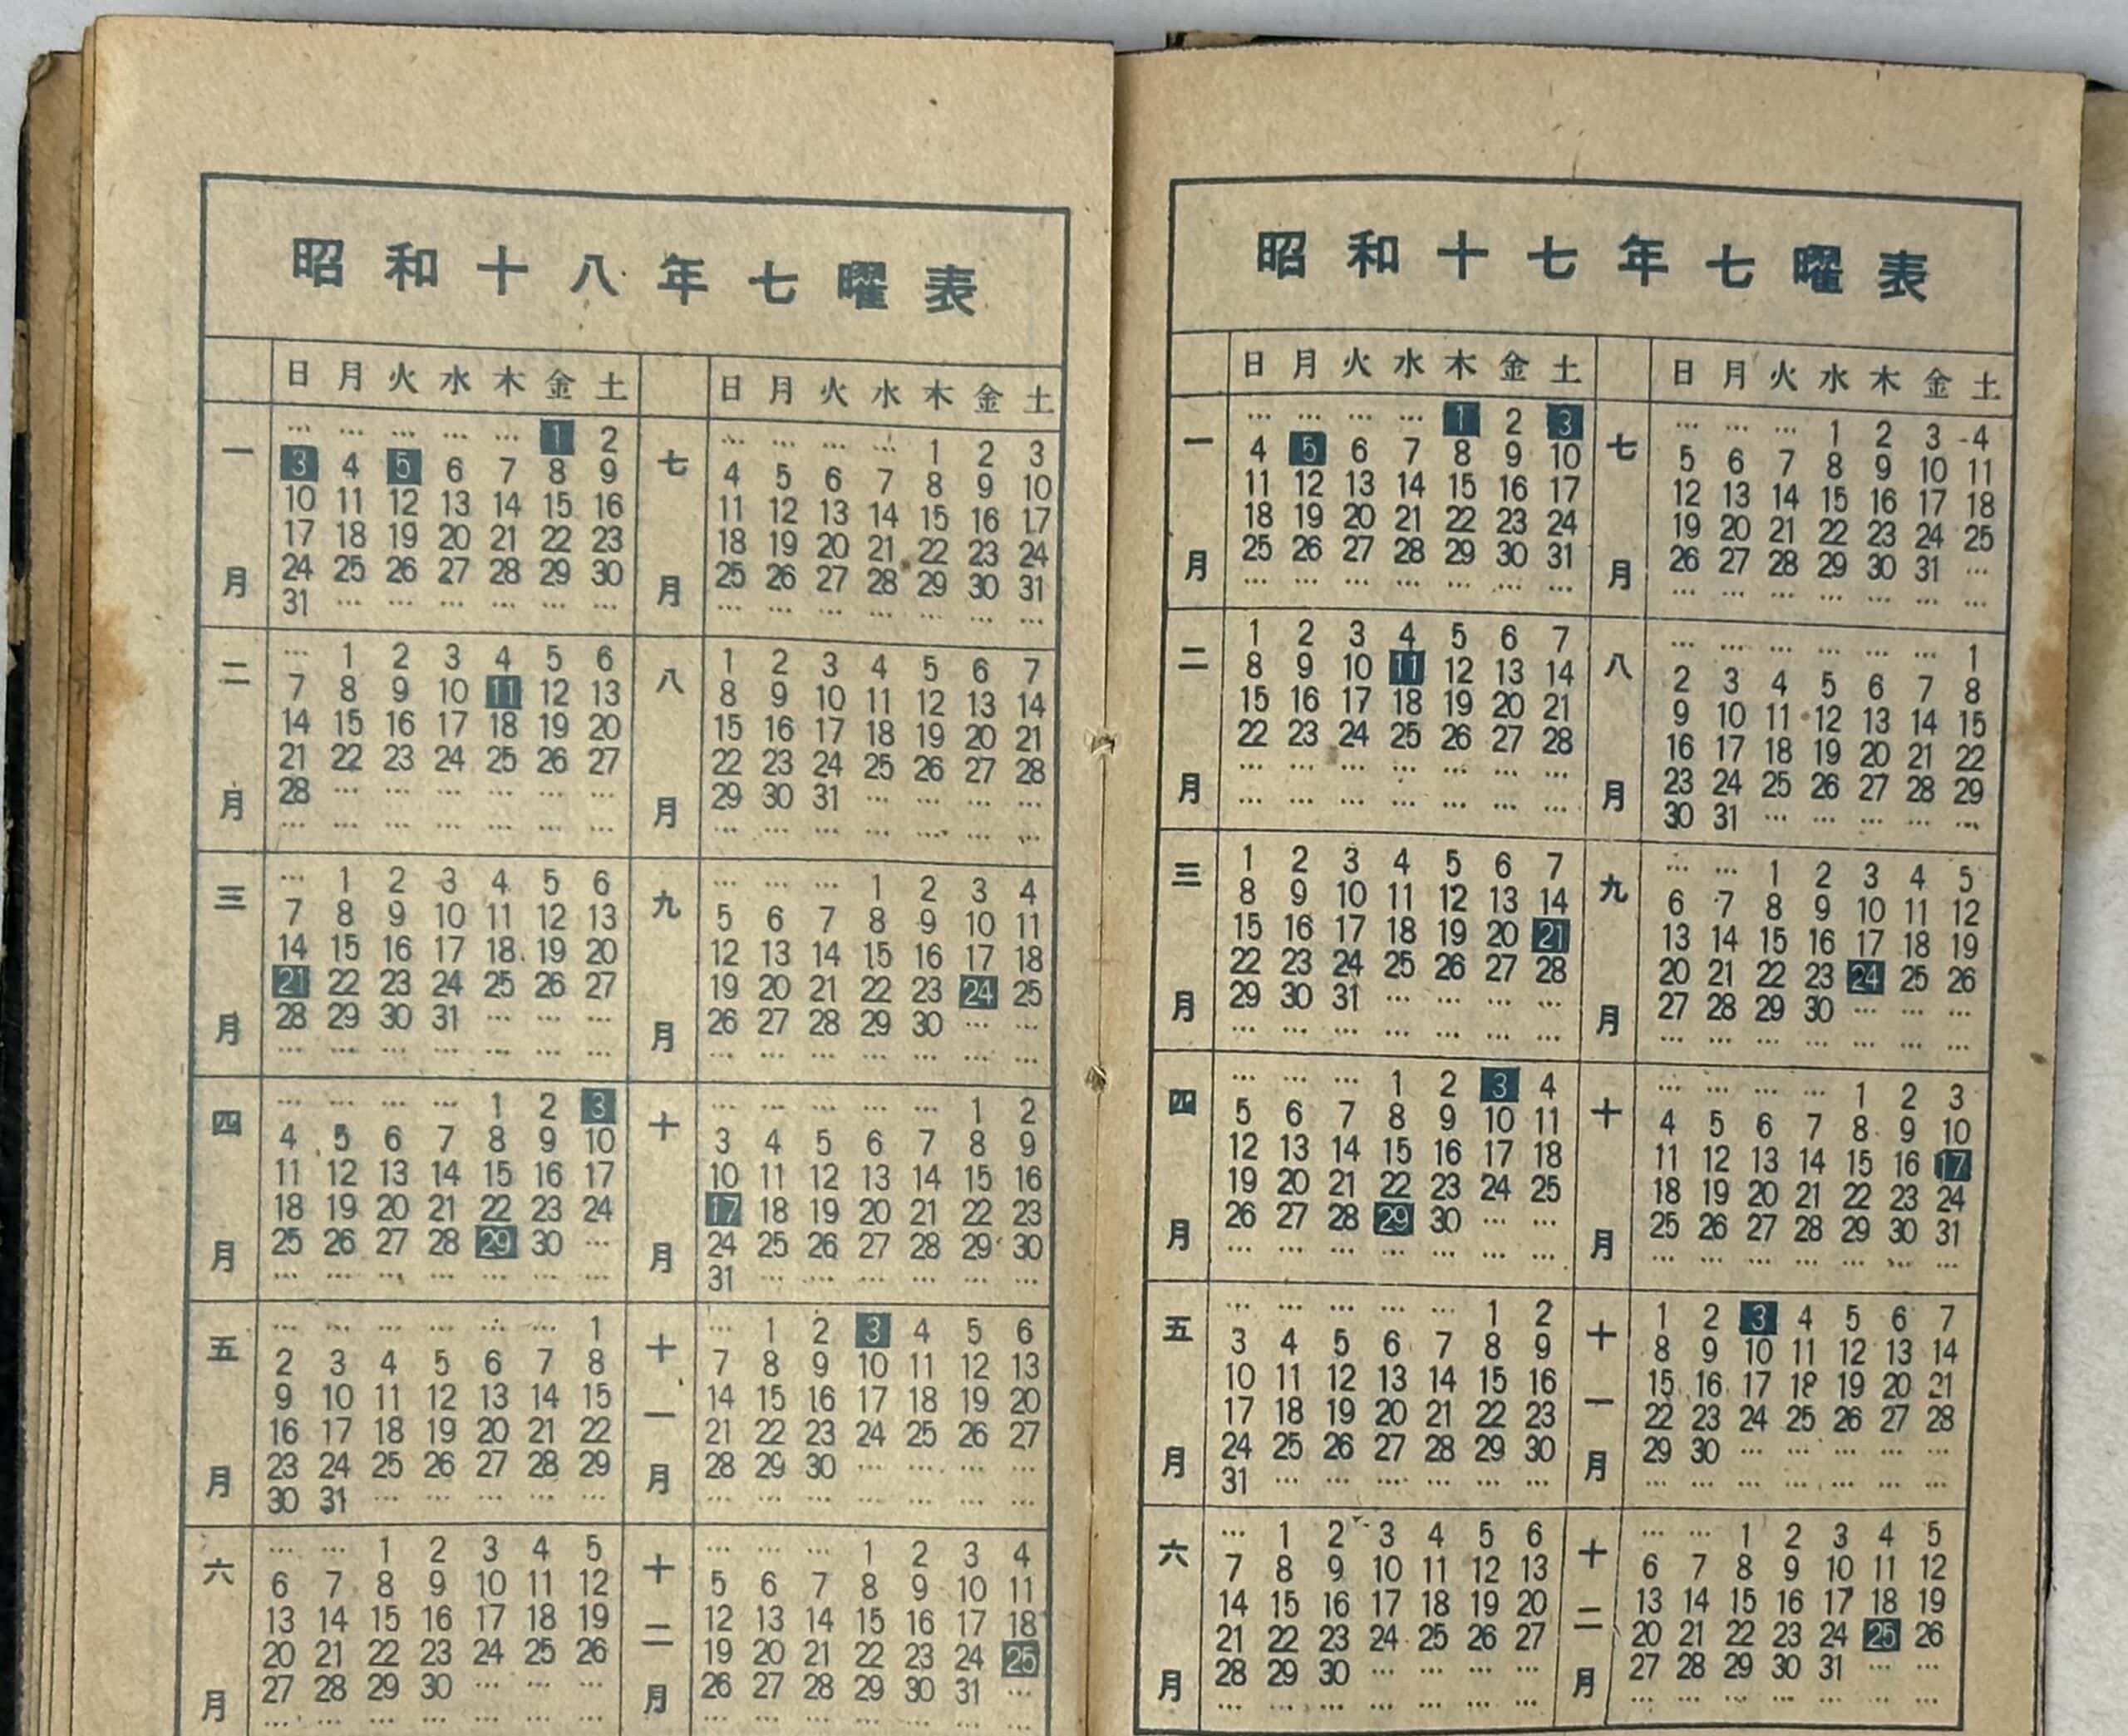 昭和十七年七曜表
日 月 火 水 木 金 土
一月
1 2 3
4 5 6 7 8 9 10
11 12 13 14 15 16 17
18 19 20 21 22 23 24
25 26 27 28 29 30 31
二月
1 2 3 4 5 6 7
8 9 10 11 12 13 14
15 16 17 18 19 20 21
22 23 24 25 26 27 28
三月
1 2 3 4 5 6 7
8 9 10 11 12 13 14
15 16 17 18 19 20 21
22 23 24 25 26 27 28
29 30 31
四月
1 2 3 4
5 6 7 8 9 10 11
12 13 14 15 16 17 18
19 20 21 22 23 24 25
26 27 28 29 30
五月
1 2
3 4 5 6 7 8 9
10 11 12 13 14 15 16
17 18 19 20 21 22 23
24 25 26 27 28 29 30
31
六月
1 2 3 4 5 6
7 8 9 10 11 12 13
14 15 16 17 18 19 20
21 22 23 24 25 26 27
28 29 30
日 月 火 水 木 金 土
七月
1 2 3 4
5 6 7 8 9 10 11
12 13 14 15 16 17 18
19 20 21 22 23 24 25
26 27 28 29 30 31
八月
1
2 3 4 5 6 7 8
9 10 11 12 13 14 15
16 17 18 19 20 21 22
23 24 25 26 27 28 29
30 31
九月
1 2 3 4 5
6 7 8 9 10 11 12
13 14 15 16 17 18 19
20 21 22 23 24 25 26
27 28 29 30
十月
1 2 3
4 5 6 7 8 9 10
11 12 13 14 15 16 17
18 19 20 21 22 23 24
25 26 27 28 29 30 31
十一月
1 2 3 4 5 6 7
8 9 10 11 12 13 14
15 16 17 18 19 20 21
22 23 24 25 26 27 28
29 30
十二月
1 2 3 4 5
6 7 8 9 10 11 12
13 14 15 16 17 18 19
20 21 22 23 24 25 26
27 28 29 30 31
昭和十八年七曜表
日 月 火 水 木 金 土
一月
1 2
3 4 5 6 7 8 9
10 11 12 13 14 15 16
17 18 19 20 21 22 23
24 25 26 27 28 29 30
31
二月
1 2 3 4 5 6
7 8 9 10 11 12 13
14 15 16 17 18 19 20
21 22 23 24 25 26 27
28
三月
1 2 3 4 5 6
7 8 9 10 11 12 13
14 15 16 17 18 19 20
21 22 23 24 25 26 27
28 29 30 31
四月
1 2 3
4 5 6 7 8 9 10
11 12 13 14 15 16 17
18 19 20 21 22 23 24
25 26 27 28 29 30
五月
1
2 3 4 5 6 7 8
9 10 11 12 13 14 15
16 17 18 19 20 21 22
23 24 25 26 27 28 29
30 31
六月
1 2 3 4 5
6 7 8 9 10 11 12
13 14 15 16 17 18 19
20 21 22 23 24 25 26
27 28 29 30
日 月 火 水 木 金 土
七月
1 2 3
4 5 6 7 8 9 10
11 12 13 14 15 16 17
18 19 20 21 22 23 24
25 26 27 28 29 30 31
八月
1 2 3 4 5 6 7
8 9 10 11 12 13 14
15 16 17 18 19 20 21
22 23 24 25 26 27 28
29 30 31
九月
1 2 3 4
5 6 7 8 9 10 11
12 13 14 15 16 17 18
19 20 21 22 23 24 25
26 27 28 29 30
十月
1 2
3 4 5 6 7 8 9
10 11 12 13 14 15 16
17 18 19 20 21 22 23
24 25 26 27 28 29 30
31
十一月
1 2 3 4 5 6
7 8 9 10 11 12 13
14 15 16 17 18 19 20
21 22 23 24 25 26 27
28 29 30
十二月
1 2 3 4
5 6 7 8 9 10 11
12 13 14 15 16 17 18
19 20 21 22 23 24 25
26 27 28 29 30 31